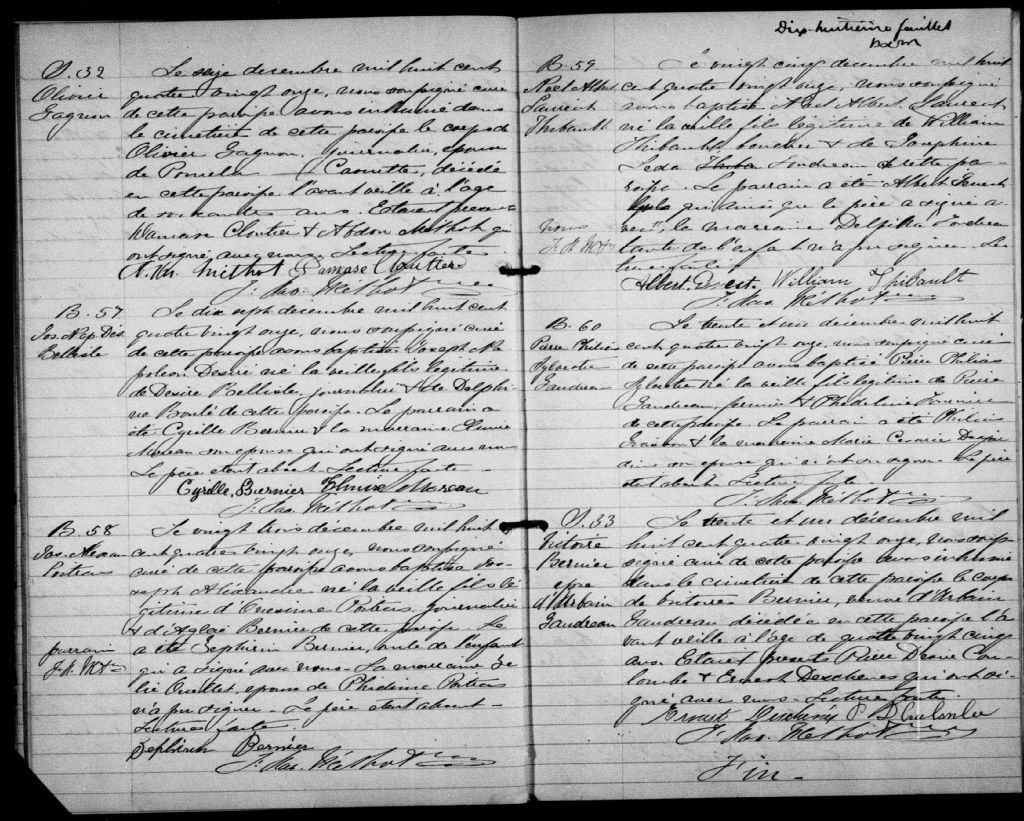 S. 32
Olivier
Gagnon
Le seize decembre mil huit cent
quatre vingt onze, nous soussigné curé
de cette paroisse avons inhumé dans
le cimetière de cette paroisse le corps de
Olivier Gagnon, journalier, epoux
de Pamela Ouellette, décédé
en cette paroisse l'avant veille à l'age
de soixante ans. Etaient presents
Damase Cloutier & Abdon Méthot qui
ont signé avec nous. Lecture faite
A. M. Méthot Damase Cloutier
J. Nao. Méthot
B. 57
Jos. Nap. Dés.
Bellisle
Le dix sept decembre mil huit cent
quatre vingt onze, nous soussigné curé
de cette paroisse avons baptisé Joseph Na
poleon Desiré né la veille fils légitime
de Desiré Bellisle, journalier & de Delphi
ne Boulé de cette paroisse. Le parrain a
été Cyrille Bernier & la marraine Elmire
Moreau son epouse qui ont signé avec nous
Le père etant absent. Lecture faite
Cyrille Bernier Elmire Moreau
J. Nao. Méthot
B. 58
Jos. Alexan
Poitras
Le vingt trois décembre mil huit
cent quatre vingt onze, nous soussigné
curé de cette paroisse avons baptisé Jo-
seph Alexandre né la veille fils lé
gitime d'Onesime Poitras journalier
& d'Aglaé Bernier de cette paroisse. Le
parrain
J. N. Mt
a été Sephirin Bernier, oncle de l'enfant
qui a signé avec nous. La marraine Zé
lié Ouellet, epouse de Phidime Poitras
n'a pu signer. Le père etant absent.
Lecture faite
Sephirin Bernier
J. Nao. Méthot
Dix-huitième feuillet
B. 59
Noel Albert
Laurent
Thibault
Le vingt cinq decembre mil huit
cent quatre vingt onze, nous soussigné
avons baptisé Noel Albert Laurent
né la veille fils légitime de William
Thibault, boucher & de Josephine
Leda Gaudreau de cette pa-
roisse. Le parrain a été Albert
qui ainsi que le père a signé a-
nous
J. N. Mt
vec la marraine Delphine Gaudreau
tante de l'enfant n'a pu signer. Le
cture faite
Albert William Thibault
J. Nao. Méthot
B. 60
Pierre Philias
Gaudreau
Le trente et un décembre mil huit
cent quatre vingt onze, nous soussigné curé
de cette paroisse avons baptisé Pierre Philias
né la veille fils légitime de Pierre
Gaudreau, fermier & Phideline Fournier
de cette paroisse. Le parrain a été Philias
& la marraine Marie Cesarie Desjar
dins son epouse qui n'ont su signer. Le père
etait absent. Lecture faite
J. Nao. Méthot
S. 33
Victoire
Bernier
epse
d'Urbain
Gaudreau
Le trente et un décembre mil
huit cent quatre vingt onze, nous sous
signé curé de cette paroisse avons inhumé
dans le cimetière de cette paroisse le corps
de Victoire Bernier, veuve d'Urbain
Gaudreau décédée en cette paroisse l'a
vant veille à l'age de quatre vingt cinq
ans. Etaient presents Pierre Desiré Cou-
lombe & Ernest Deschenes qui ont si-
gné avec nous. Lecture faite.
Ernest Deschênes P. D. Coulombe
J. Nao. Méthot
Fin.